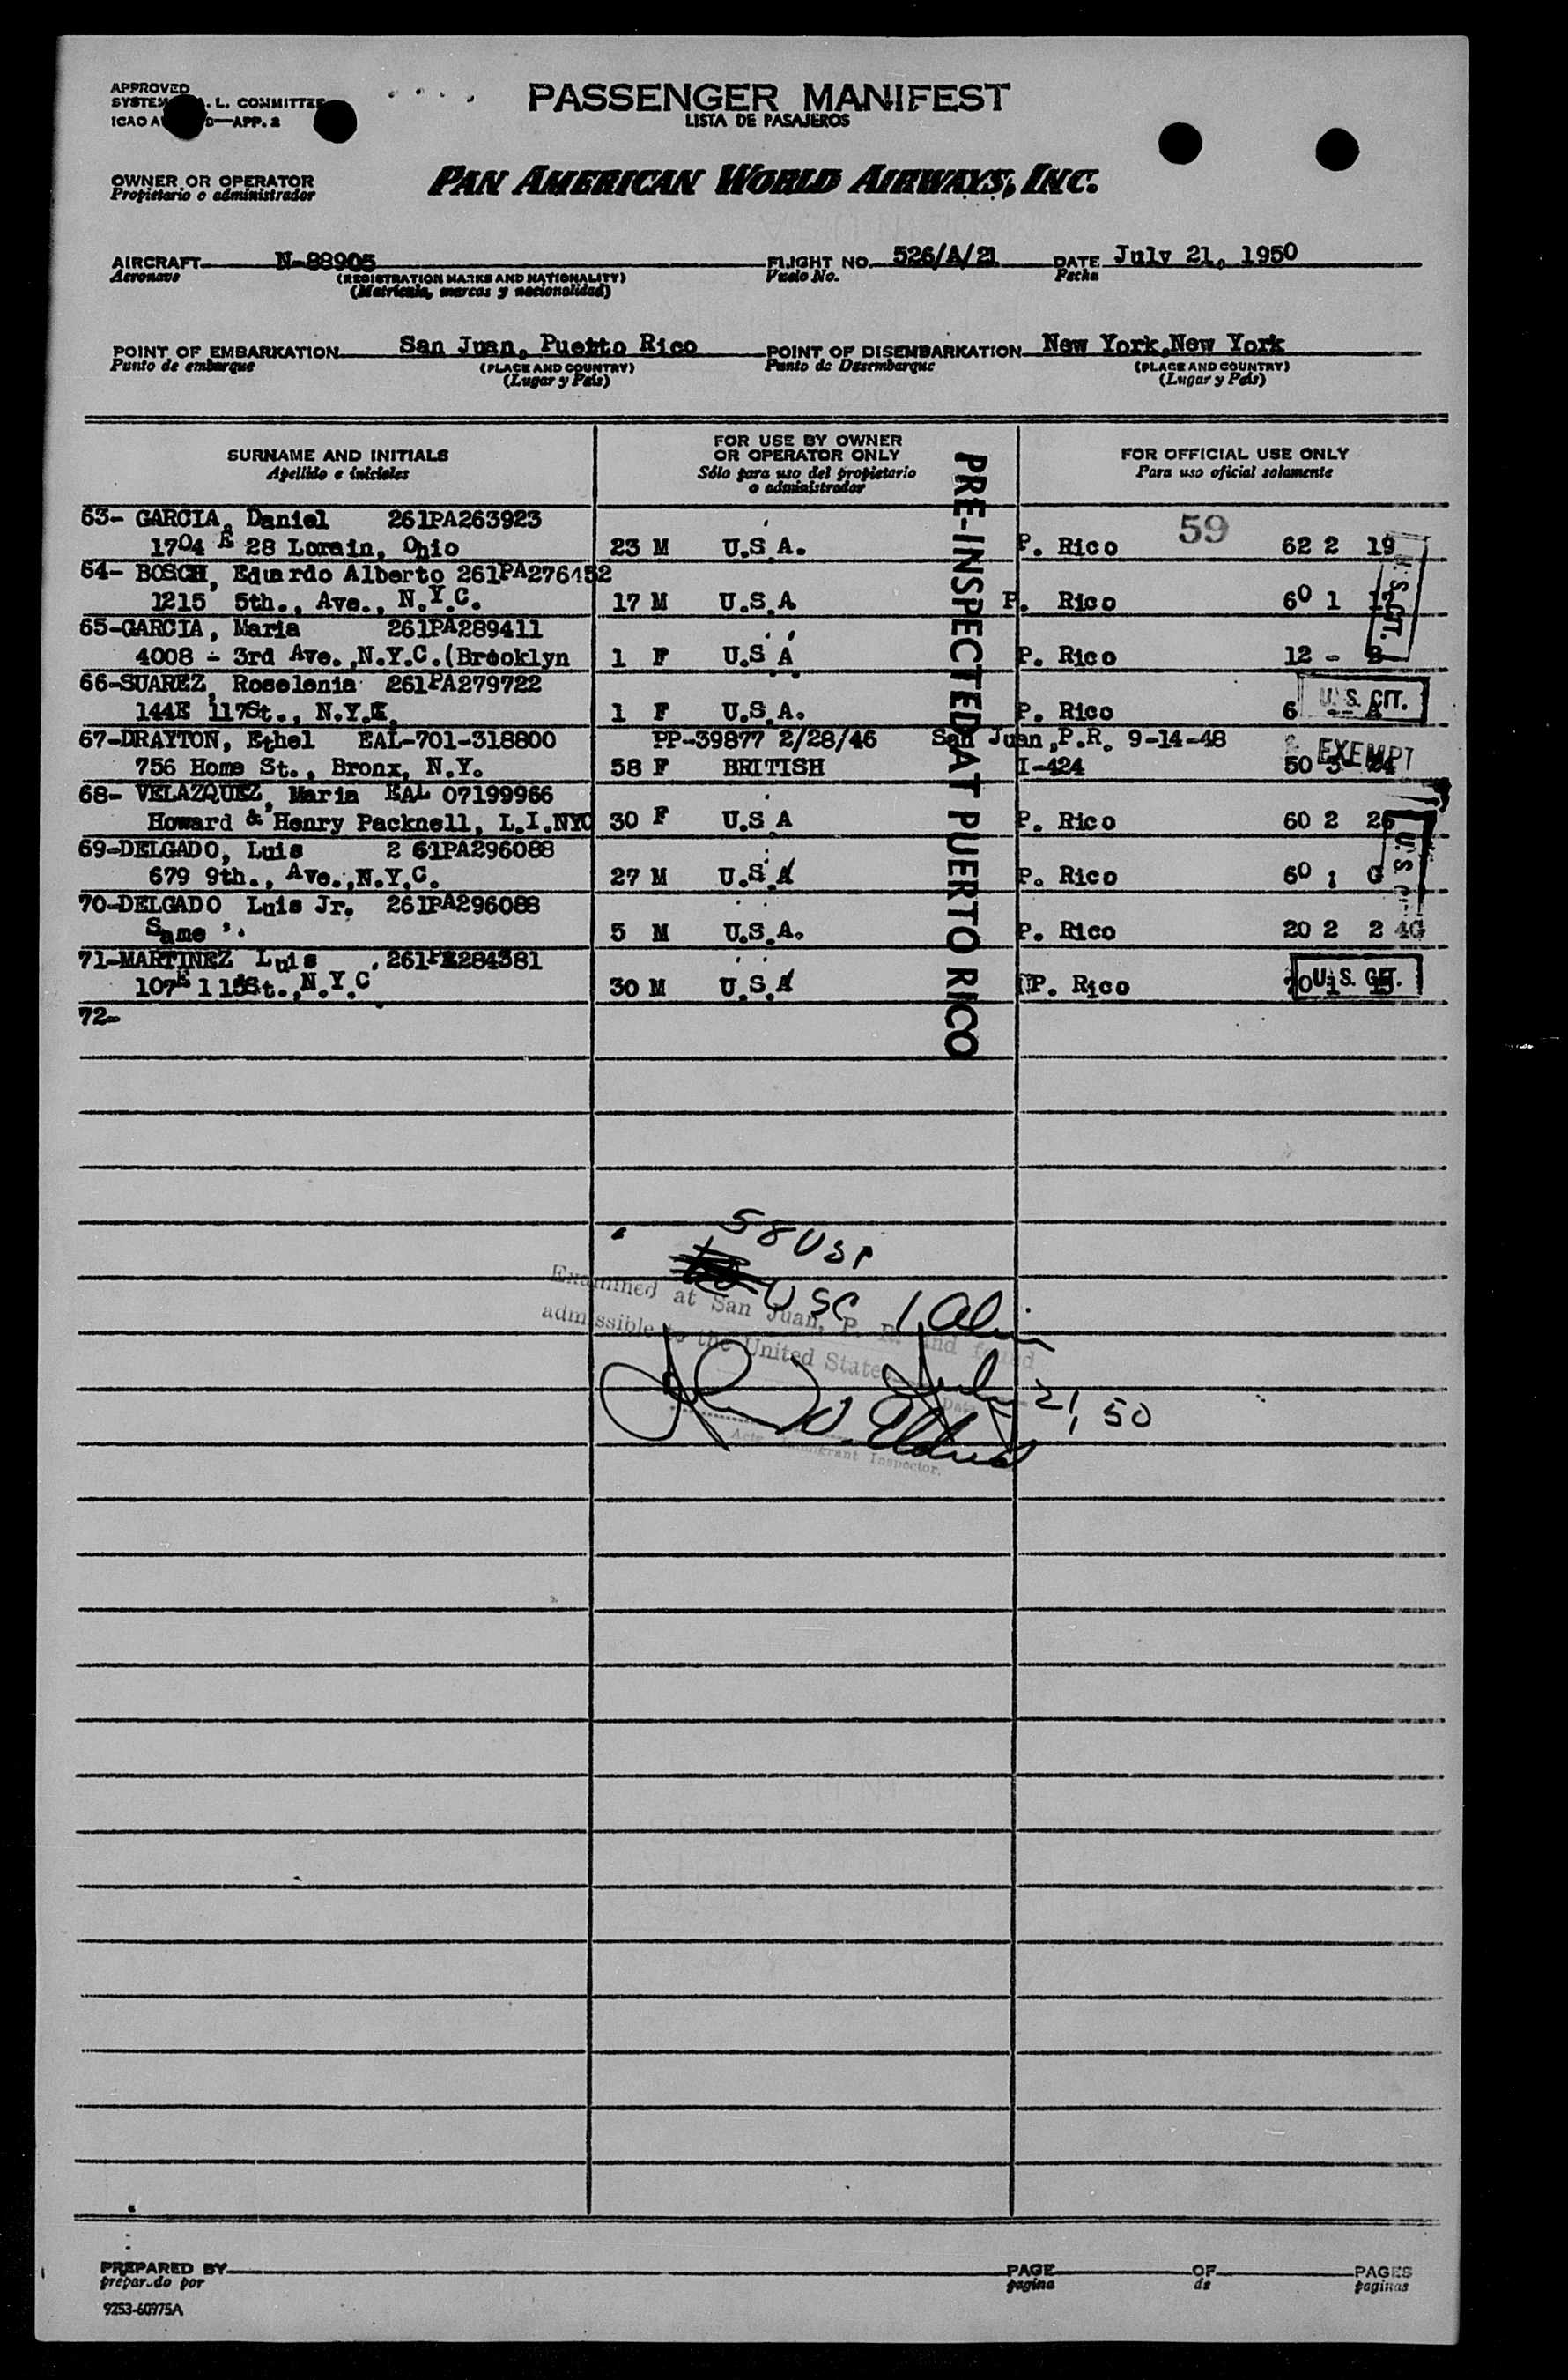 APPROVED
SYSTEM . L. COMMITTEE
ICAO A D—APP. 2
PASSENGER MANIFEST
LISTA DE PASAJEROS
OWNER OR OPERATOR
Propietario o administrador
PAN AMERICAN WORLD AIRWAYS, INC.
AIRCRAFT N-88905 FLIGHT NO. 526/A/21 DATE July 21, 1950
Aeronave (REGISTRATION MARKS AND NATIONALITY) Vuelo No. Fecha
(Matricula, marcas y nacionalidad)
POINT OF EMBARKATION San Juan, Puerto Rico POINT OF DISEMBARKATION New York,New York
Punto de embarque (PLACE AND COUNTRY) Punto de Desembarque (PLACE AND COUNTRY)
(Lugar y País) (Lugar y País)
SURNAME AND INITIALS FOR USE BY OWNER OR OPERATOR ONLY FOR OFFICIAL USE ONLY
Apellido e iniciales Sólo para uso del propietario o administrador Para uso oficial solamente
PRE-INSPECTED AT PUERTO RICO
63- GARCIA, Daniel 261PA263923 59
1704 E 28 Lorain, Ohio 23 M U.S.A. P. Rico 62 2 19
64- BOSCH, Eduardo Alberto 261PA276452
1215 5th., Ave., N.Y.C. 17 M U.S.A P. Rico 60 1
U.S. CIT.
65-GARCIA, Maria 261PA289411
4008 - 3rd Ave.,N.Y.C.(Brooklyn 1 F U.S A P. Rico 12 -
66-SUAREZ, Roselenia 261PA279722
144E 117St., N.Y. 1 F U.S.A. P. Rico 6 U. S. CIT.
67-DRAYTON, Ethel EAL-701-318800 PP-39877 2/28/46 San Juan,P.R. 9-14-48
756 Home St., Bronx, N.Y. 58 F BRITISH I-424 50 3 EXEMPT
68- VELAZQUEZ, Maria EAL 07199966
Howard & Henry Packnell, L.I.NYC 30 F U.S A P. Rico 60 2
69-DELGADO, Luis 2 61PA296088
679 9th., Ave.,N.Y.C. 27 M U.S.A P. Rico 60 1
70-DELGADO Luis Jr. 261PA296088
Same 5 M U.S.A. P. Rico 20 2 2
71-MARTINEZ Luis 261PA284381
107E 115St.,N.Y.C 30 M U.S.A P. Rico U. S. CIT.
72-
58 USA
USC 1 Alien
Examined at San Juan, P. R. and found
admissible to the United States
July 21, 50
Date
Immigrant Inspector.
PREPARED BY PAGE OF PAGES
preparado por pagina de paginas
9253-60975A